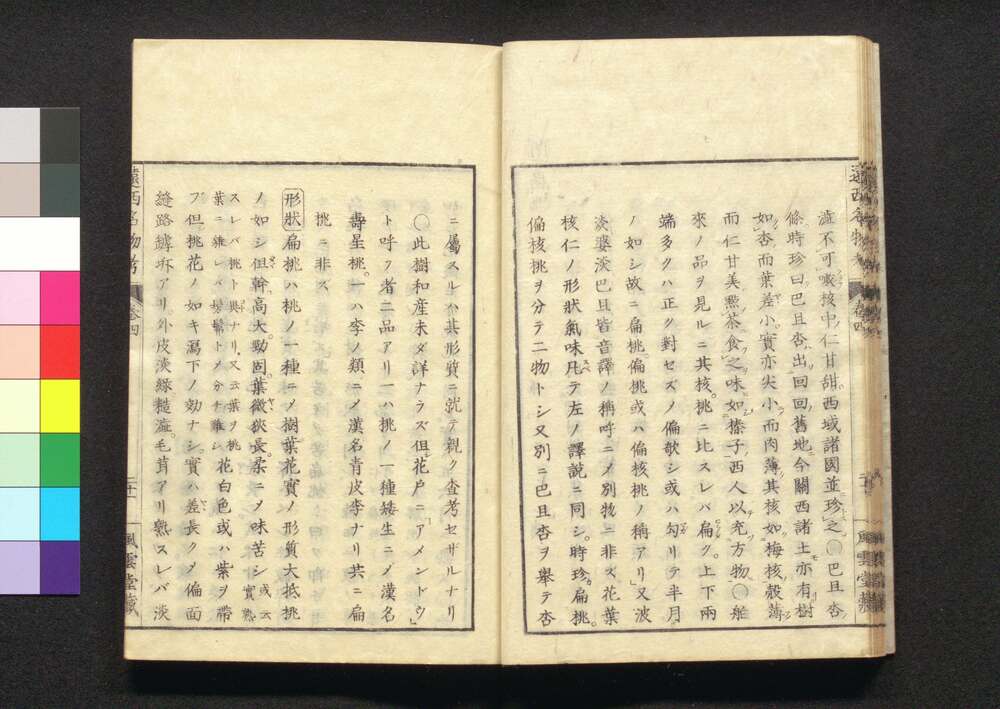 澁不可啖核中仁甘甜西域諸國並珍之〇巴旦杏
條時珍曰巴旦杏出回回舊地今關西諸土亦有樹
如杏而葉差小實亦尖小而肉薄其核如梅核殼薄
而仁甘美點茶食之味如榛子西人以充方物〇舶
來ノ品ヲ見ルニ其核桃ニ比スレバ扁ク上下兩
端多クハ正ク對セズノ偏欹シ或ハ勾リテ半月
ノ如シ故ニ扁桃偏桃或ハ偏核桃ノ稱アリ又波
淡婆淡巴旦皆音譯ノ稱呼ニメ別物ニ非ズ花葉
核仁ノ形狀氣味凡テ左ノ譯説ニ同シ時珍扁桃
偏核桃ヲ分テ二物トシ又別ニ巴旦杏ヲ擧テ杏
遠西名物考 卷四 風雲堂藏
ニ屬スルハ其形質ニ就テ親ク査考セザルナリ
〇此樹和産未ダ詳ナラズ但花戸ニアメンドウ
ト呼フ者二品アリ一ハ桃ノ一種矮生ニメ漢名
壽星桃一ハ李ノ類ニメ漢名青皮李ナリ共ニ扁
桃ニ非ス
形狀扁桃ハ桃ノ一種ニメ樹葉花實ノ形質大抵桃
ノ如シ但幹高大勁固葉微狹長柔ニメ味苦シ或云實熟
スレバ桃ト異ナリ又云葉ヲ桃
葉ニ雜レバ髣髴トメ分チ難シ花白色或ハ紫ヲ帶
ブ但桃花ノ如キ瀉下ノ効ナシ實ハ差長クメ偏面
縫路罅坼アリ外皮淡緑糙澁毛茸アリ熟スレバ淡
遠西名物考 卷四 二十一 風雲堂藏